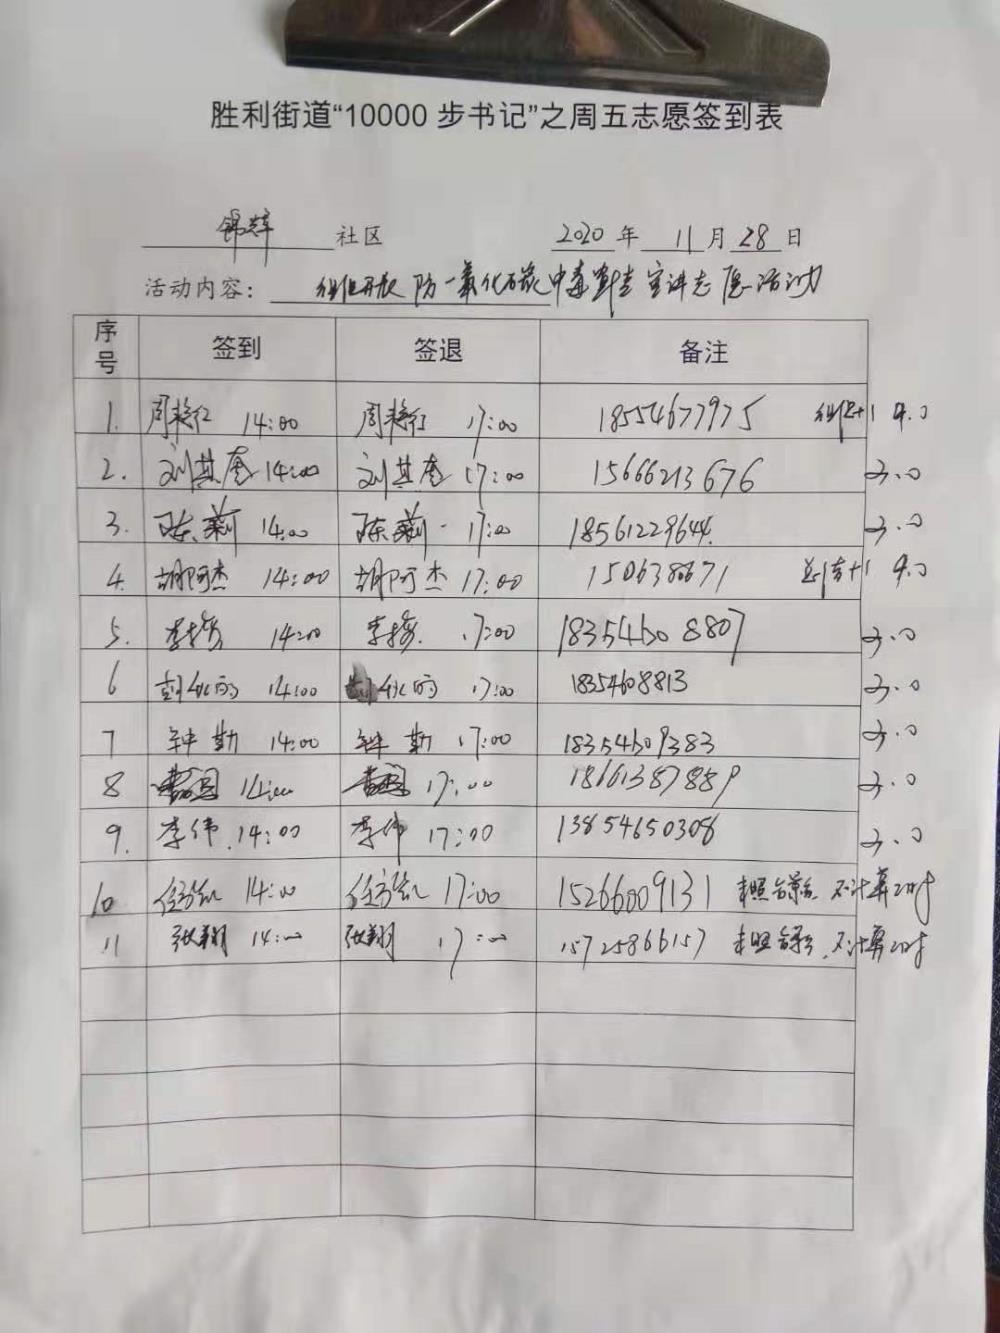 胜利街道“10000 步书记”之周五志愿签到表
锦华 社区 2020 年 11 月 28 日
活动内容： 组织开展 防一氧化碳中毒 宣讲志愿活动
序号 签到 签退 备注
1. 14:00 17:00 18554677975 组织+1 4.0
2. 刘其奎 14:00 刘其奎 17:00 15666213676 3.0
3. 陈莉 14:00 陈莉 17:00 18561229644 3.0
4. 胡阿杰 14:00 胡阿杰 17:00 +1 4.0
5. 李梅 14:00 李梅 17:00 18354608807 3.0
6 14:00 17:00 18354608813 3.0
7 钟勤 14:00 钟勤 17:00 18354609383 3.0
8 14:00 17:00 18661387889 3.0
9. 李伟 14:00 李伟 17:00 13854650308 3.0
10 14:00 17:00 15266009131 未照合影 不计算工时
11 张翔 14:00 张翔 17:00 15725866157 未照合影，不计算工时